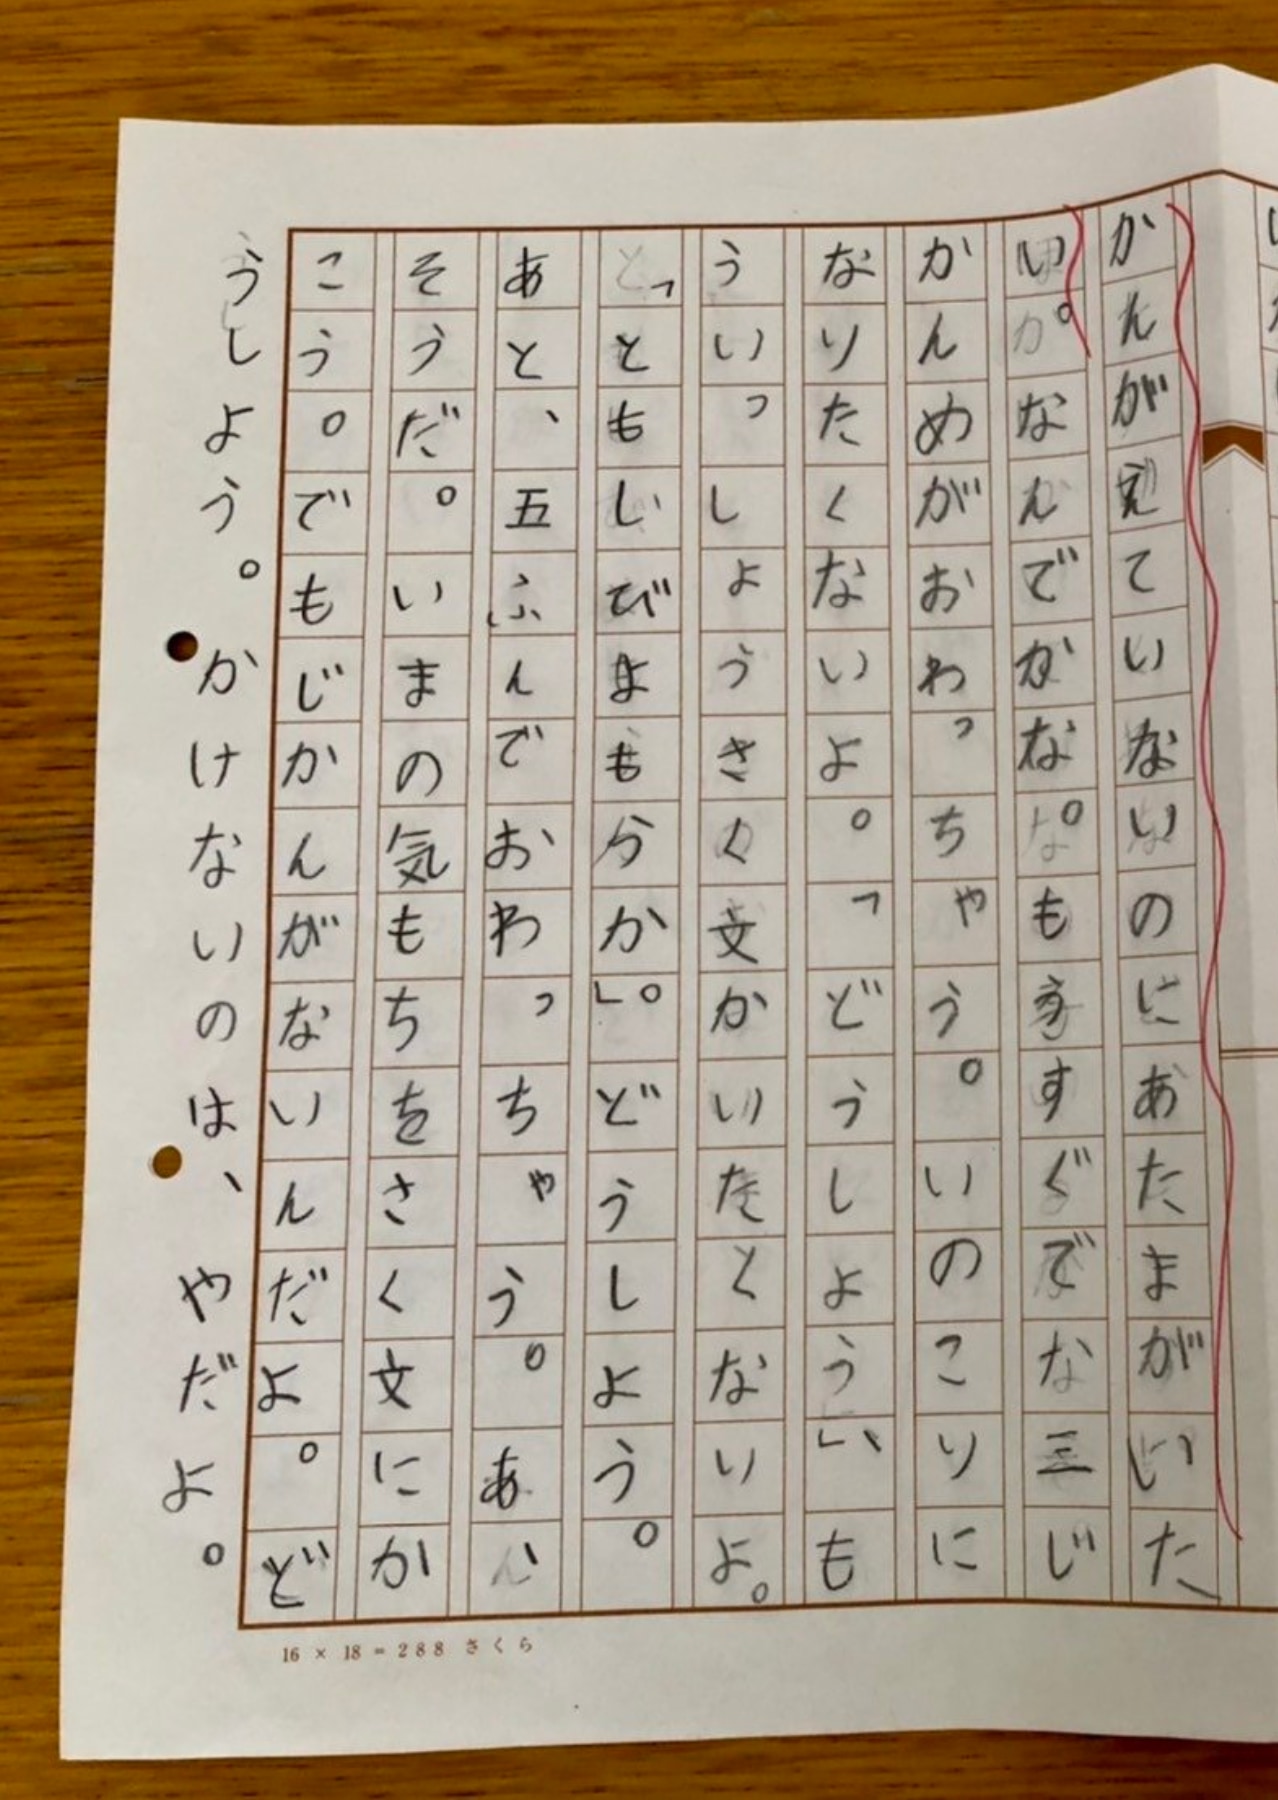 かんがえていないのにあたまがいた
い。なんでかな。もうすぐでな三じ
かんめがおわっちゃう。いのこりに
なりたくないよ。「どうしよう」、も
ういっしょうさく文かいたくないよ。
「ともしびよもうか」。どうしよう。
あと、五ふんでおわっちゃう。あ、
そうだ。いまの気もちをさく文にか
こう。でもじかんがないんだよ。ど
うしよう。かけないのは、やだよ。
16 × 18 = 288 さくら